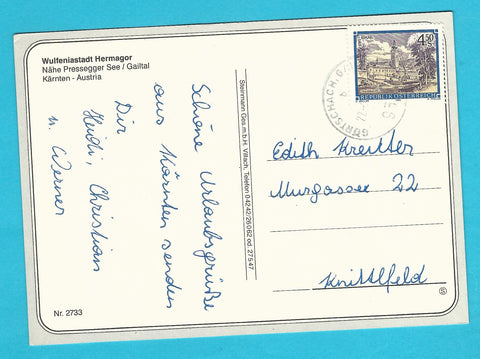 Wulfeniastadt Hermagor
Nähe Pressegger See / Gailtal
Kärnten - Austria
Schöne Urlaubsgrüße
aus Kärnten senden
Dir
Heidi, Christian
u. Werner
Nr. 2733
Steinmann Ges.m.b.H. Villach, Telefon 04242/26062 od. 27547
4.50
REPUBLIK ÖSTERREICH
GÖRTSCHACH
Edith Kreitter
Murgasse 22
Knittlfeld